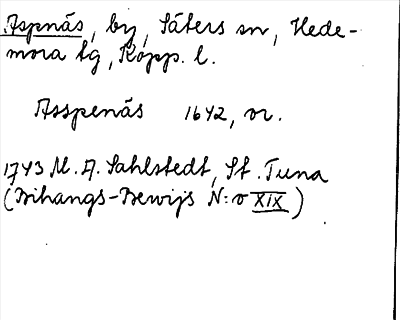 Aspenäs, by, Säters sn, Hede-
mora tg, Kopp. l.
Asspenäs 1642, or.
1743 M. A. Sahlstedt, St. Tuna
(Bihangs-Bewijs N:o XIX)